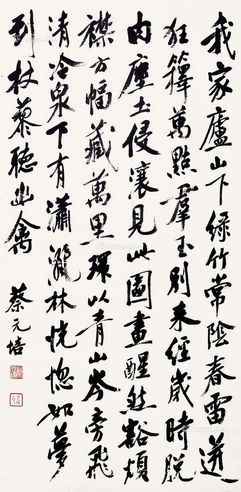 我家廬山下綠竹常陰春雷迸
狂籜萬點群玉別來經歲時脫
肉塵土侵瀼見此圖畫醒然豁煩
襟方幅藏萬里環以青山岑旁飛
清泠泉下有瀟灑林恍惚如夢
到杖藜聽幽禽
蔡元培